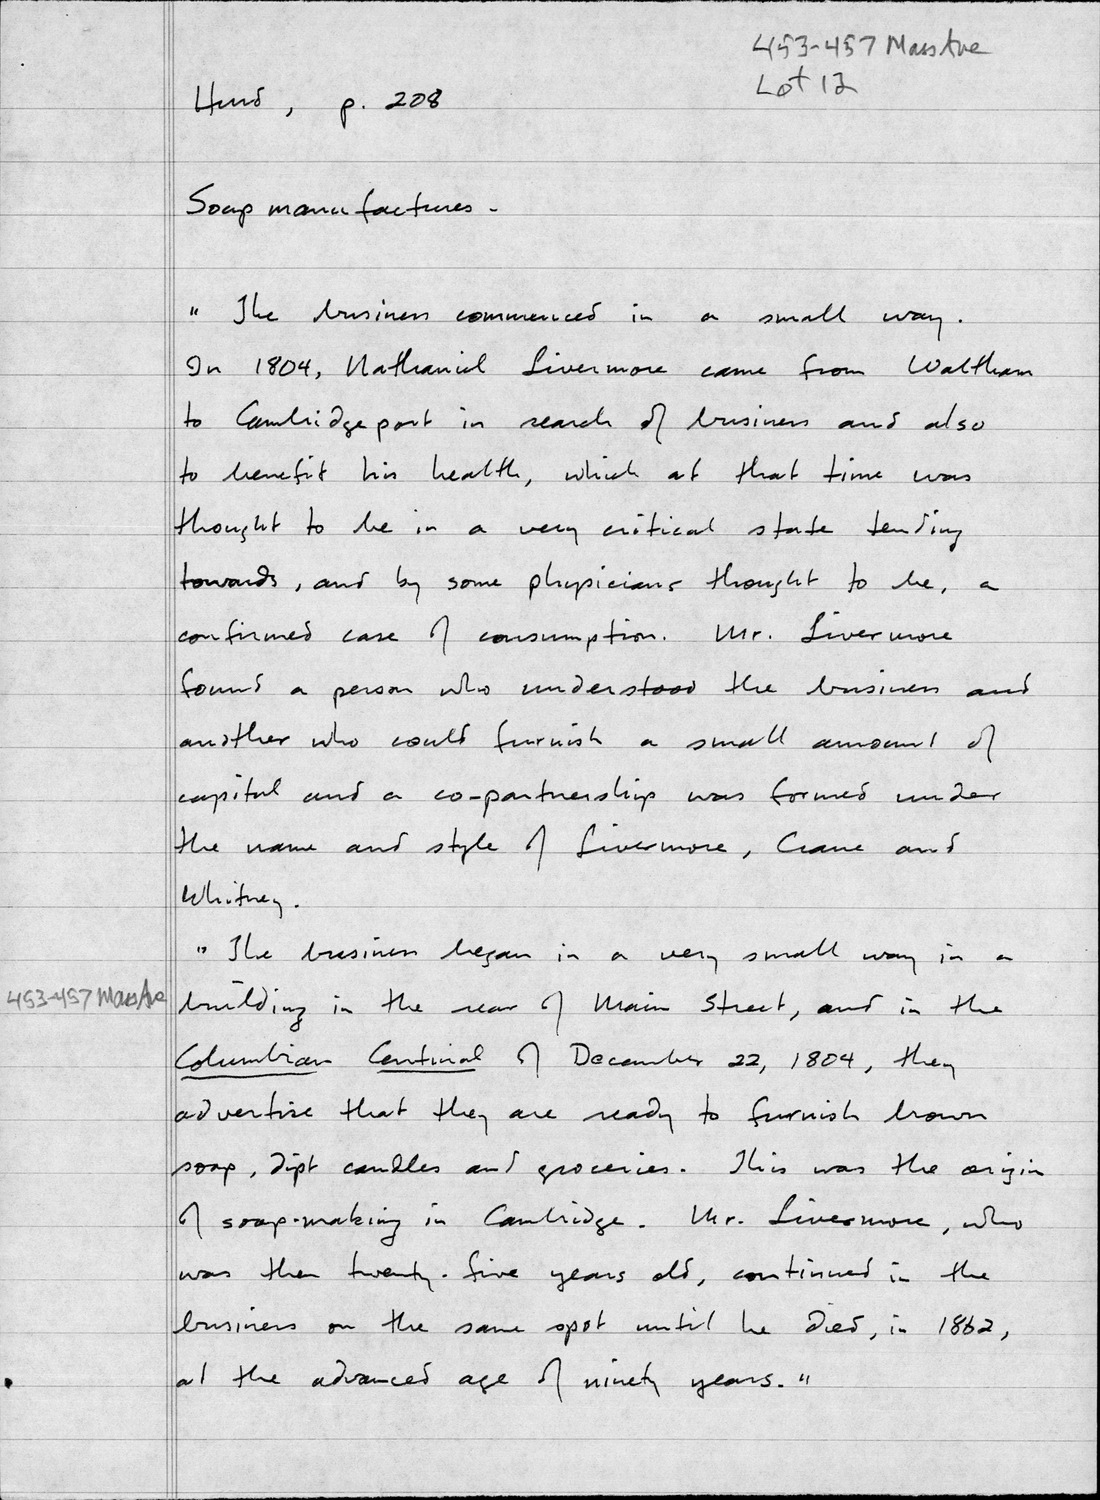 453-457 Mass Ave
Lot 12
Hurd, p. 208
Soap manufactures.
" The business commenced in a small way.
In 1804, Nathaniel Livermore came from Waltham
to Cambridgeport in search of business and also
to benefit his health, which at that time was
thought to be in a very critical state tending
towards, and by some physicians thought to be, a
confirmed case of consumption. Mr. Livermore
found a person who understood the business and
another who could furnish a small amount of
capital and a co-partnership was formed under
the name and style of Livermore, Crane and
Whitney.
" The business began in a very small way in a
453-457 Mass Ave
building in the rear of Main Street, and in the
Columbian Centinal of December 22, 1804, they
advertise that they are ready to furnish brown
soap, dipt candles and groceries. This was the origin
of soap-making in Cambridge. Mr. Livermore, who
was then twenty-five years old, continued in the
business on the same spot until he died, in 1862,
at the advanced age of ninety years."